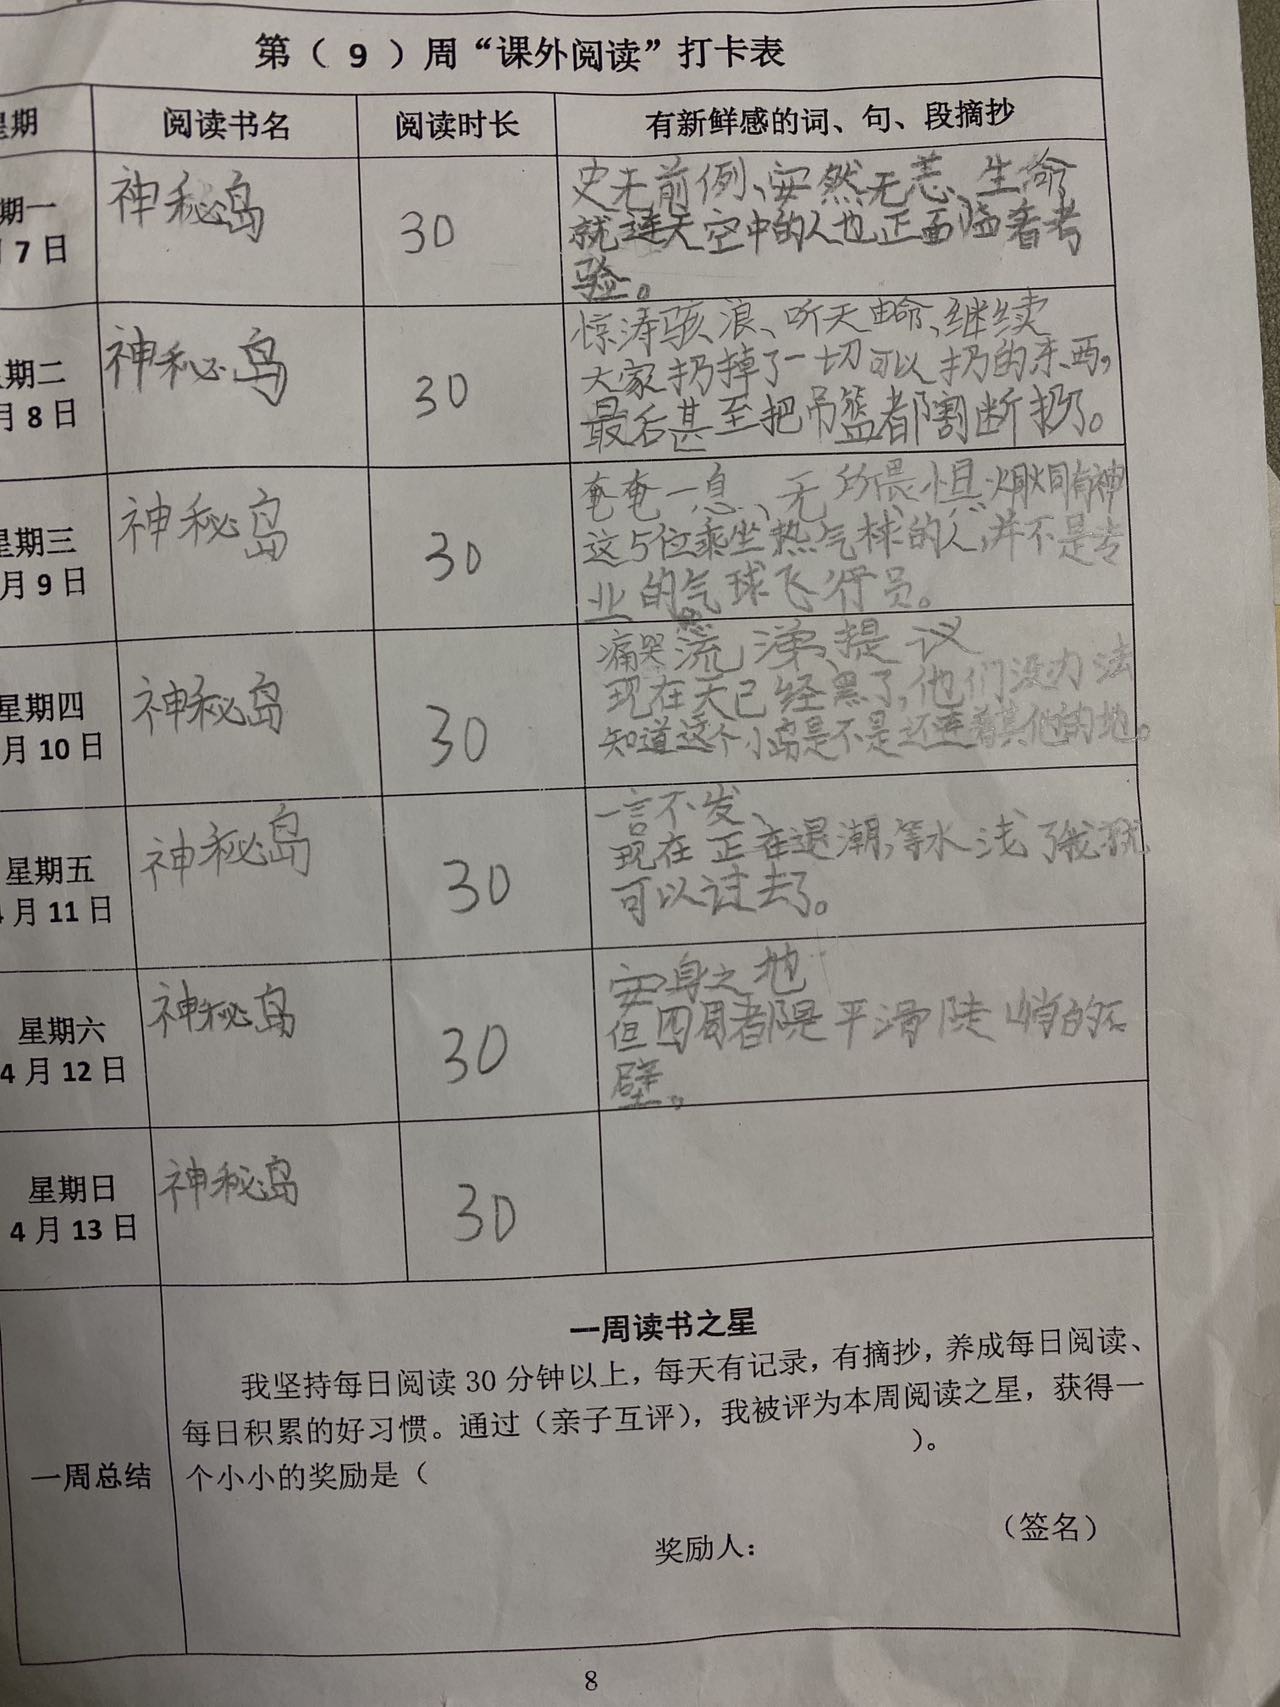 第（ 9 ）周“课外阅读”打卡表
星期 阅读书名 阅读时长 有新鲜感的词、句、段摘抄
期一
月 7 日
神秘岛
30
史无前例、安然无恙、生命
就连天空中的人也正面临着考
验。
期二
月 8 日
神秘岛
30
惊涛骇浪、听天由命、继续
大家扔掉了一切可以扔的东西,
最后甚至把吊篮都割断扔了。
星期三
月 9 日
神秘岛
30
奄奄一息、无所畏惧、炯炯有神
这5位乘坐热气球的人,并不是专
业的气球飞行员。
星期四
月 10 日
神秘岛
30
痛哭流涕、提议
现在天已经黑了,他们没办法
知道这个小岛是不是还连着其他的地。
星期五
月 11 日
神秘岛
30
一言不发、
现在正在退潮,等水浅了我就
可以过去了。
星期六
4 月 12 日
神秘岛
30
安身之地
但四周都是平滑陡峭的石
壁。
星期日
4 月 13 日
神秘岛
30
一周总结
一周读书之星
我坚持每日阅读 30 分钟以上，每天有记录，有摘抄，养成每日阅读、
每日积累的好习惯。通过（亲子互评），我被评为本周阅读之星，获得一
个小小的奖励是（ ）。
（签名）
奖励人：
8